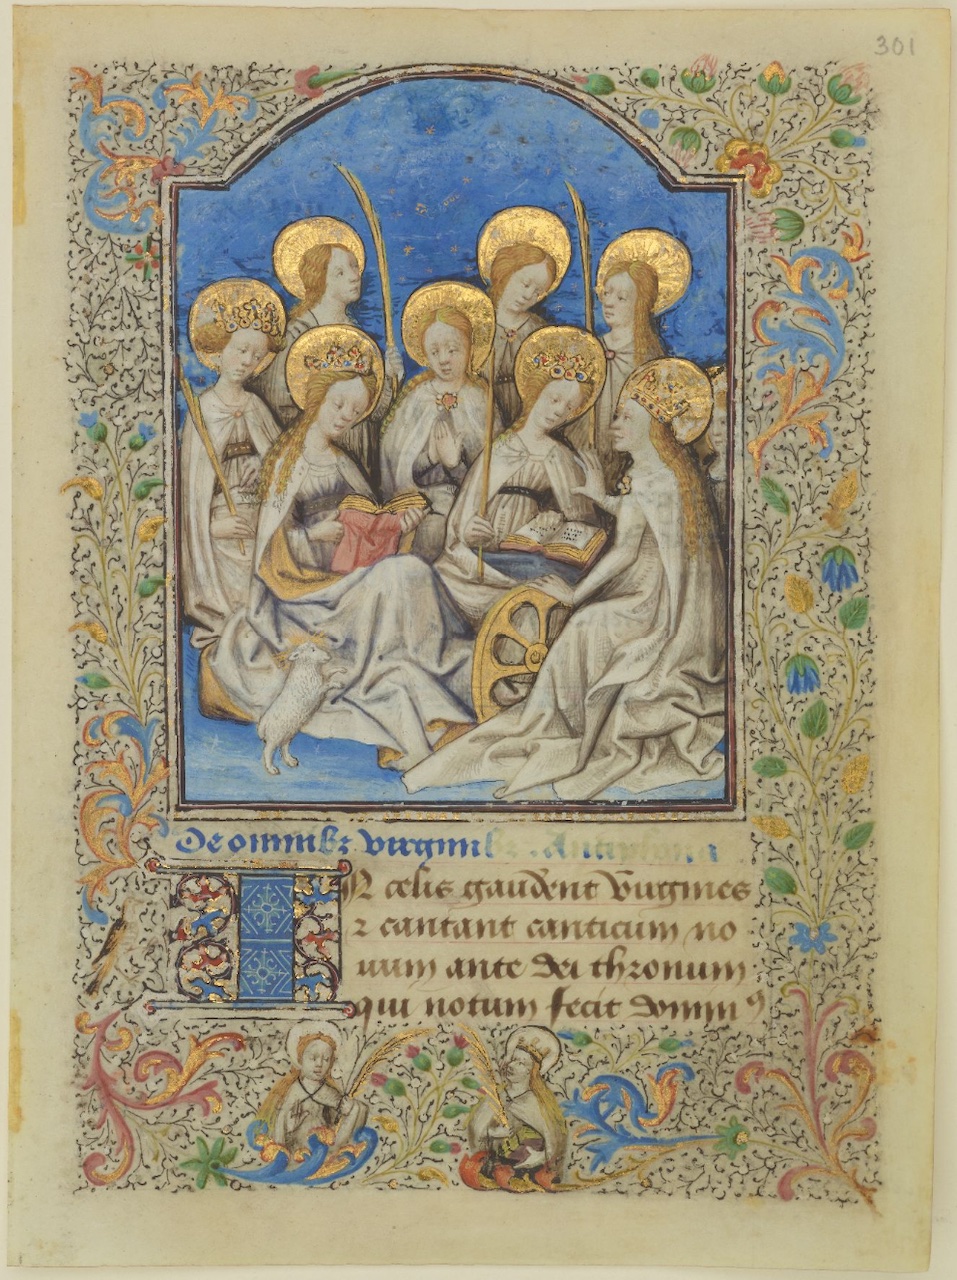 301
De omnibꝫ virginibꝫ. Antiphona
In celis gaudent virgines
⁊ cantant canticum no
uum ante dei thronum
qui notum fecit domin⁹